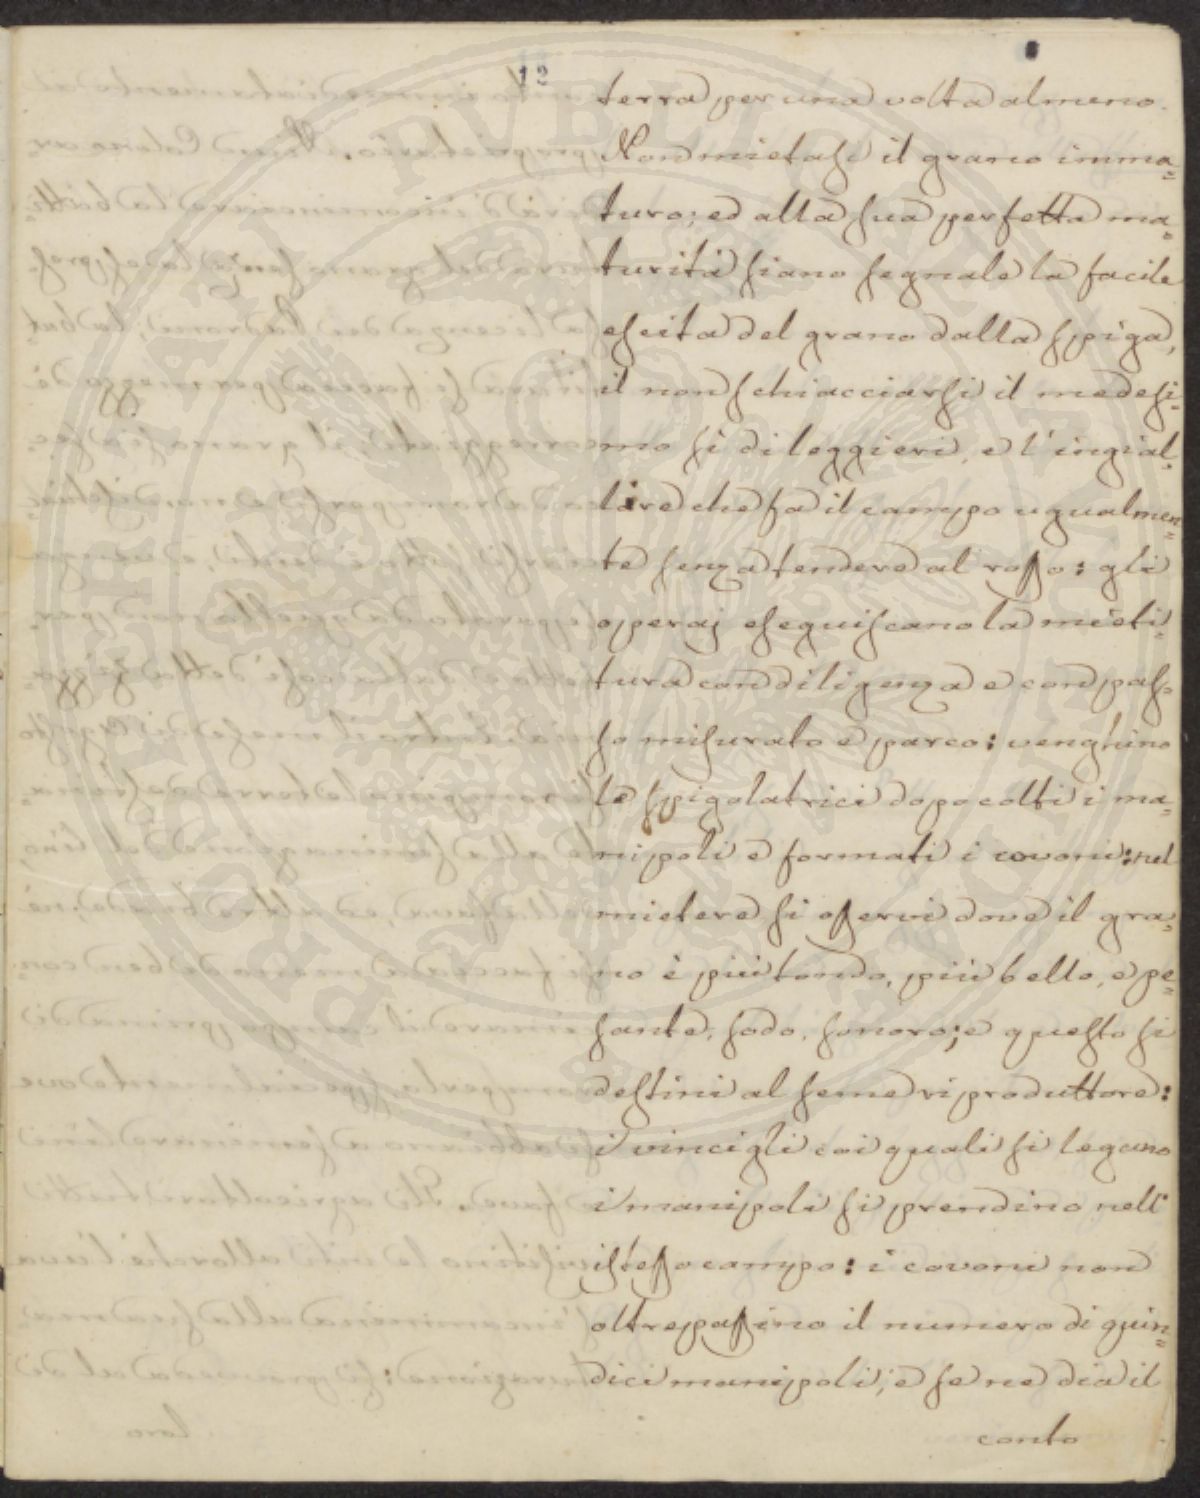 12
terra per una volta almeno.
Non mietasi il grano imma=
turo; ed alla sua perfetta ma=
turità siano segnale la facile
escita del grano dalla spiga,
il non schiacciarsi il medesi=
mo sì di leggieri, e l'ingial=
lire che fa il campo ugualmen=
te senza tendere al rosso: gli
operaj eseguiscano la mieti=
tura con diligenza e con pas=
so misurato e parco: venghino
le spigolatrici dopo colti i ma=
nipoli e formati i covoni: nel
mietere si osservi dove il gra=
no è più tondo, più bello, e pe=
sante, sodo, sonoro; e questo si
destini al seme riproduttore:
i vincigli coi quali si legano
i manipoli si prendino nell'
istesso campo: i covoni non
oltrepassino il numero di quin=
dici manipoli, e se ne dia il
conto